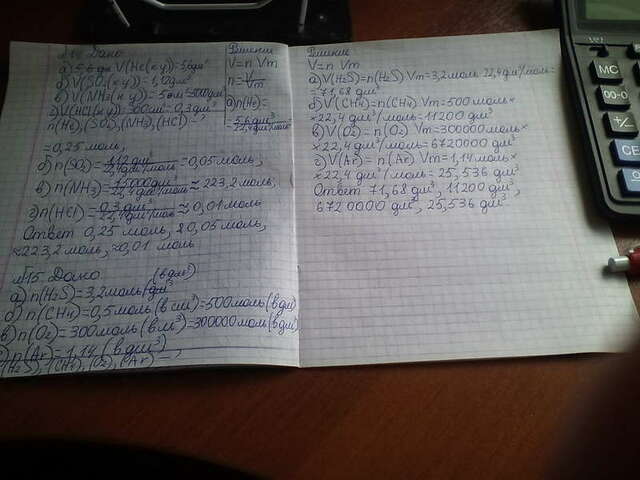 №14 Дано
а) 5,6 дм V(He(н.у.)=5,6дм³
б) V(SO₂(н.у.)=1,12дм³
в) V(NH₃(н.у.)= 5м³=5000дм³
г) V(HCl(н.у)=300см³=0,3дм³
n(He),(SO₂),(NH₃),(HCl) -
Решение
V=n Vm
n= V/Vm
а)n(He)=
= 5,6дм³/22,4дм³/моль =
=0,25 моль,
б) n(SO₂)= 1,12дм³/22,4дм³/моль =0,05 моль,
в) n(NH₃)= 5000дм³/22,4дм³/моль ≈ 223,2 моль,
г) n(HCl)= 0,3дм³/22,4дм³/моль ≈ 0,01 моль
Ответ 0,25 моль, 0,05 моль,
≈223,2 моль, ≈0,01 моль
№15 Дано (в дм³)
а) n(H₂S)=3,2моль(дм³
б) n(CH₄)=0,5моль(в см³)=500моль(в дм
в) n(O₂)=300моль(в м³)=300000моль(в дм
г) n(Ar)=1,14 (в дм³)
(H₂S),(CH₄),(O₂),(Ar) -
Решение
V=n Vm
а)V(H₂S)=n(H₂S) Vm=3,2моль 22,4дм³/моль=
=71,68 дм³
б) V(CH₄)=n(CH₄) Vm=500 моль×
×22,4 дм³/моль=11200 дм³
в) V(O₂)= n(O₂) Vm=300000моль×
×22,4 дм³/моль=6720000 дм³
г) V(Ar)=n(Ar) Vm=1,14моль×
×22,4дм³/моль=25,536 дм³
Ответ 71,68 дм³, 11200 дм³,
6720000 дм³, 25,536 дм³
MC
00-0
+/-
CE